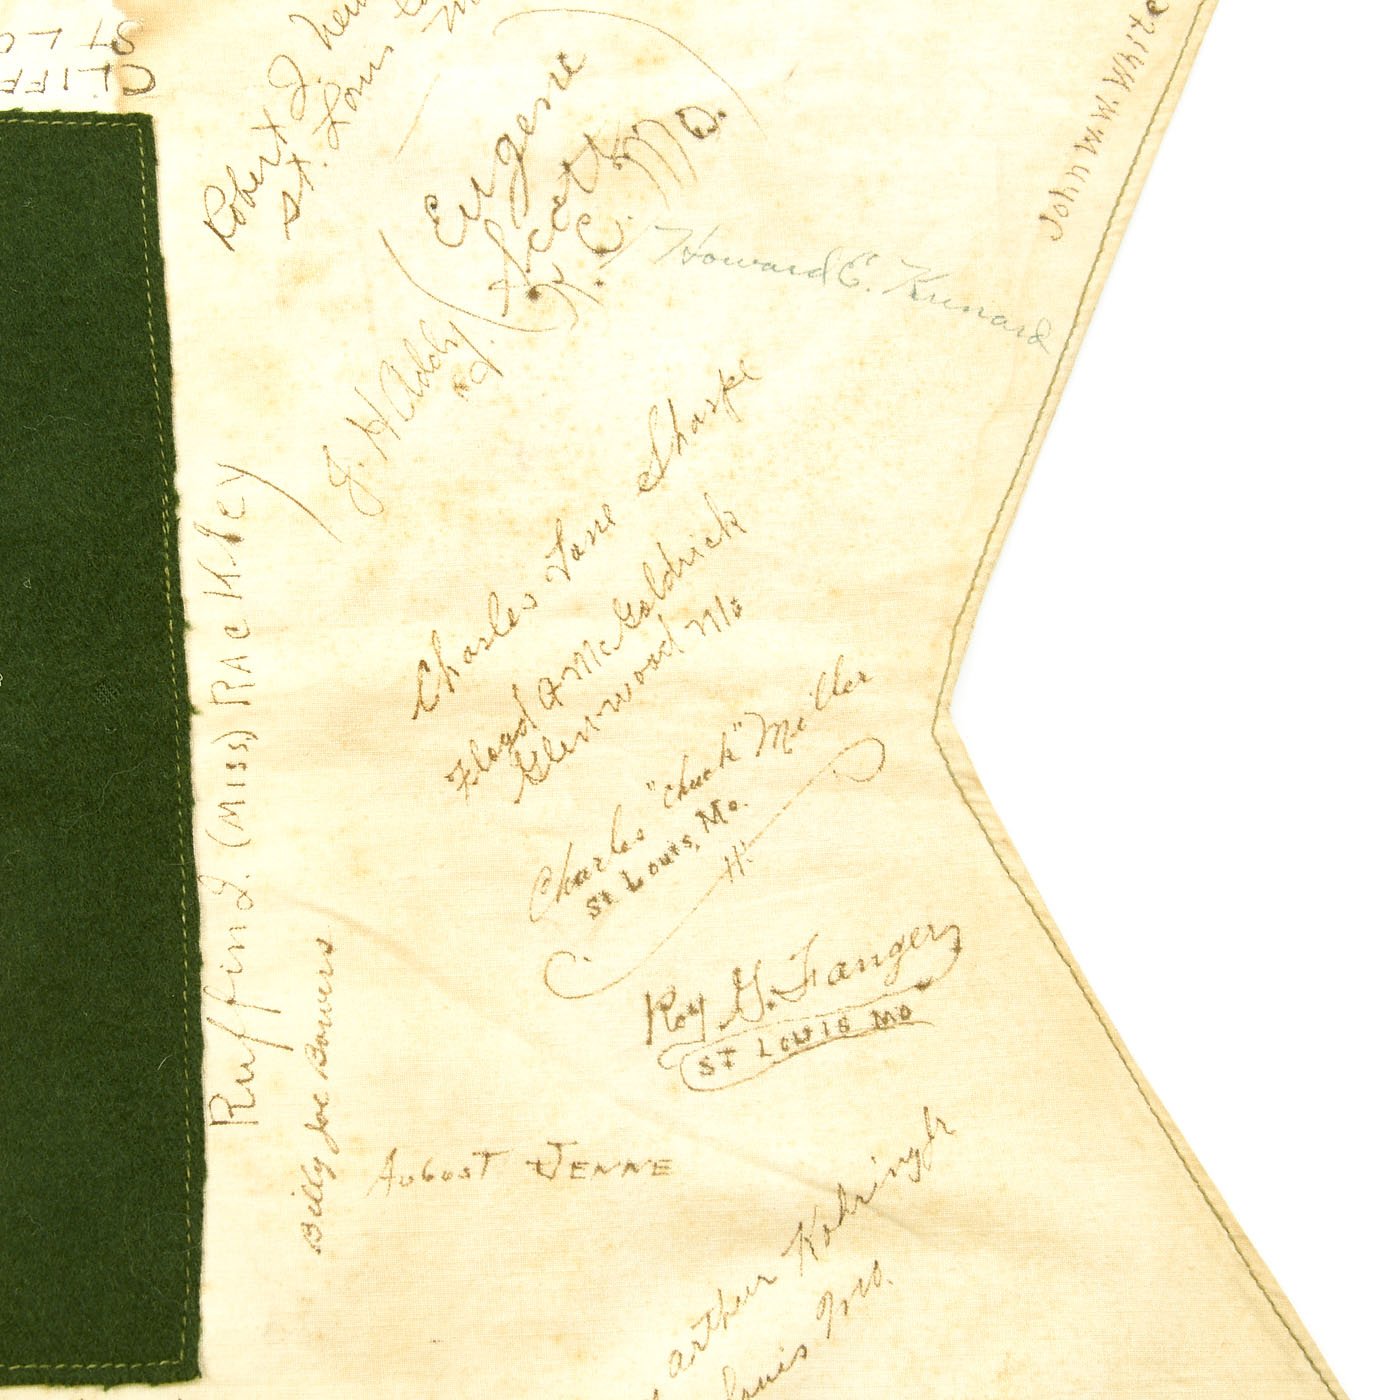 ST LO
CLIFF
Robert J.
St. Louis
Eugene
Scott
K.C. Mo.
John W. W. White
Howard E. Kunard
J. H. Addy
Charles Lane Sharpe
Floyd A McGoldrick
Glenwood Mo
Charles "Chuck" Miller
St Louis, Mo.
Ruffin J. (Miss) Rackley
Roy G. Fanger
ST LOUIS MO
Billy Joe Bowers
AUGUST JENNE
Arthur Kohring Jr
Louis Mo.